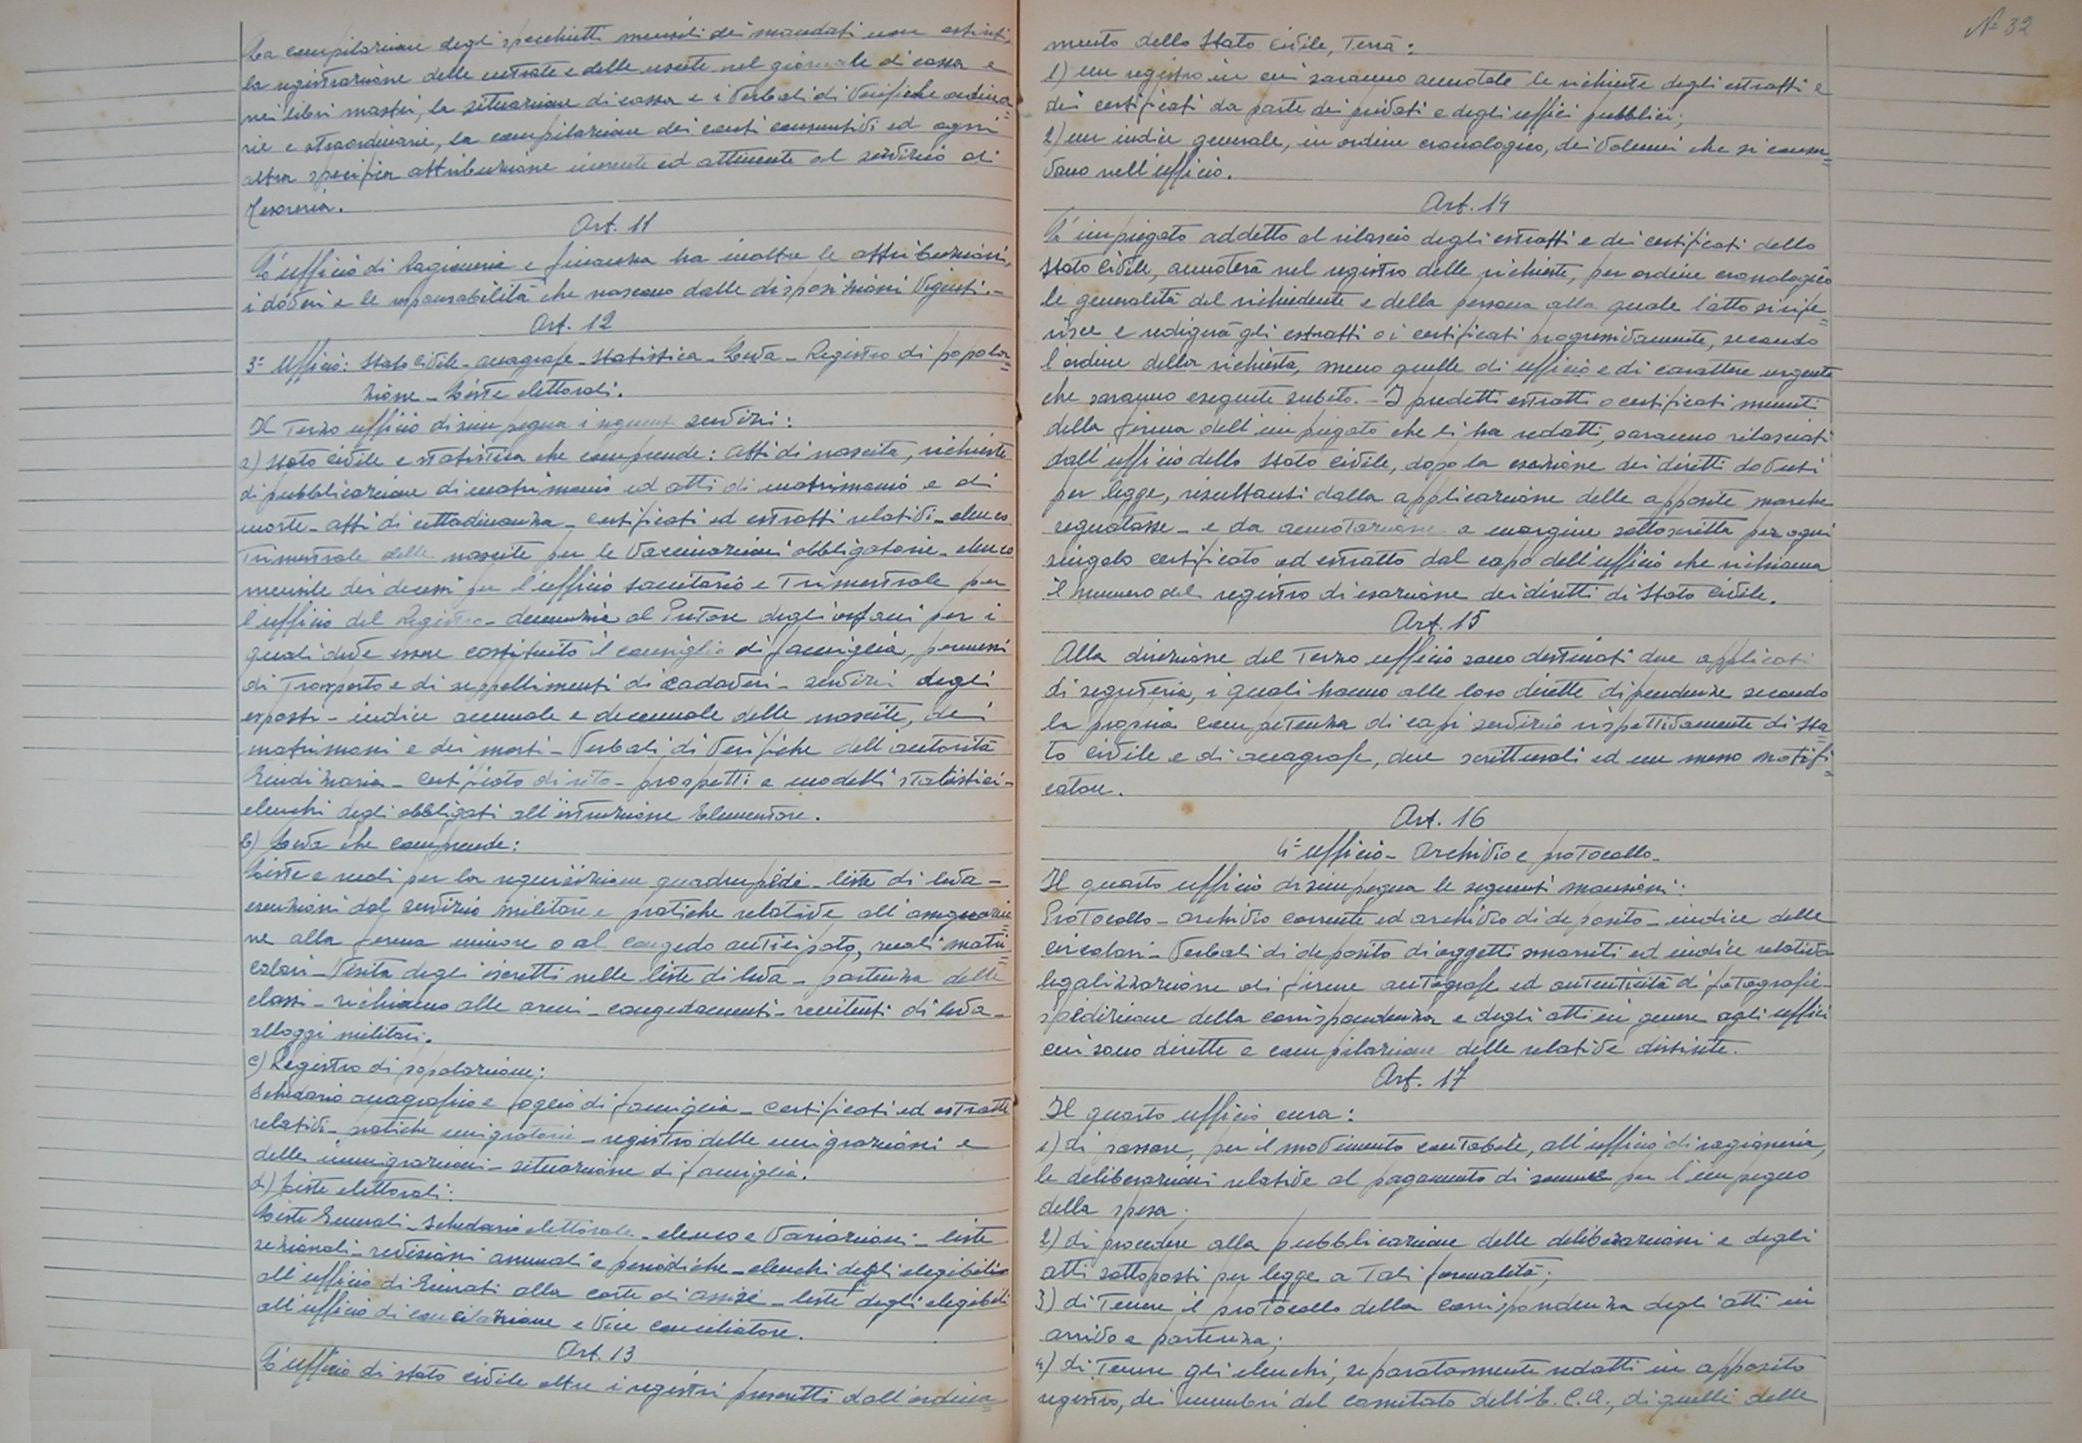 La compilazione degli specchietti mensili dei mandati non estinti,
la registrazione delle entrate e delle uscite nel giornale di cassa e
nei libri mastri, la situazione di cassa e i verbali di verifiche ordina=
rie e straordinarie, la compilazione dei conti consuntivi ed ogni
altra specifica attribuzione inerente ed attinente al servizio di
Tesoreria.
Art. 11
L'ufficio di Ragioneria e finanza ha inoltre le attribuzioni,
i doveri e le responsabilità che nascono dalle disposizioni vigenti.-
Art. 12
3° Ufficio: Stato Civile - anagrafe - statistica - Leva - Registro di popola=
zione - Liste elettorali.
Il Terzo ufficio disimpegna i seguenti servizi:
a) Stato Civile e statistica che comprende: Atti di nascita, richieste
di pubblicazione di matrimonio ed atti di matrimonio e di
morte - atti di cittadinanza - certificati ed estratti relativi - elenco
Trimestrale delle nascite per le vaccinazioni obbligatorie - elenco
mensile dei decessi per l'ufficio sanitario e Trimestrale per
l'ufficio del Registro - denunzie al Pretore degli orfani per i
quali deve essere costituito il consiglio di famiglia, permessi
di Trasporto e di seppellimenti di cadaveri - servizi degli
esposti - indice annuale e decennale delle nascite, dei
matrimoni e dei morti - Verbali di verifiche dell'autorità
Giudiziaria - certificato di rito - prospetti e modelli statistici -
elenchi degli obbligati all'istruzione Elementare.
b) Leva che comprende:
Liste e ruoli per la requisizione quadrupedi - liste di leva -
esenzioni dal servizio militare e pratiche relative all'assegnazio=
ne alla ferma minore o al congedo anticipato, ruoli matri=
colari - Visita degli iscritti nelle liste di leva - partenza delle
classi - richiamo alle armi - congedamenti - renitenti di leva -
alloggi militari.
c) Registro di popolazione:
Schedario anagrafico e foglio di famiglia - certificati ed estratti
relativi - pratiche emigratorie - registro delle emigrazioni e
delle immigrazioni - situazione di famiglia.
d) Liste elettorali:
Liste Generali - Schedario elettorale - elenco e variazioni - liste
sezionali - revisioni annuali e periodiche - elenchi degli eleggibili
all'ufficio di Giurati alla corte di assise - liste degli eleggibili
all'ufficio di conciliazione e vice conciliatore.
Art. 13
L'ufficio di stato civile oltre i registri prescritti dall'ordina=
N° 32
mento dello Stato Civile, Terrà:
1) un registro in cui saranno annotate le richieste degli estratti e
dei certificati da parte dei privati e degli uffici pubblici;
2) un indice generale, in ordine cronologico, dei volumi che si conser=
vano nell'ufficio.
Art. 14
L'impiegato addetto al rilascio degli estratti e dei certificati dello
Stato Civile, annoterà nel registro delle richieste, per ordine cronologico
le generalità del richiedente e della persona alla quale l'atto si rife=
risce e redigerà gli estratti o i certificati progressivamente, secondo
l'ordine della richiesta, meno quelle di ufficio e di carattere urgente
che saranno eseguite subito. - I predetti estratti o certificati muniti
della firma dell'impiegato che li ha redatti, saranno rilasciati
dall'ufficio dello Stato Civile, dopo la esazione dei diritti dovuti
per legge, risultanti dalla applicazione delle apposite marche
segnatasse - e da annotazione a margine sottoscritta per ogni
singolo certificato ed estratto dal capo dell'ufficio che richiama
il numero del registro di esazione dei diritti di Stato Civile.
Art. 15
Alla direzione del Terzo ufficio sono destinati due applicati
di segreteria, i quali hanno alle loro dirette dipendenze secondo
la propria competenza di capi servizio rispettivamente di Sta=
to Civile e di anagrafe, due scritturali ed un messo notifi=
catore.
Art. 16
4° ufficio - Archivio e protocollo -
Il quarto ufficio disimpegna le seguenti mansioni:
Protocollo - archivio corrente ed archivio di deposito - indice delle
circolari - Verbali di deposito di oggetti smarriti ed indice relativo
legalizzazione di firme autografe ed autenticità di fotografie -
spedizione della corrispondenza e degli atti in genere agli uffici
cui sono dirette e compilazione delle relative distinte.
Art. 17
Il quarto ufficio cura:
1) di passare, per il movimento contabile, all'ufficio di ragioneria,
le deliberazioni relative al pagamento di somme per l'impegno
della spesa;
2) di procedere alla pubblicazione delle deliberazioni e degli
atti sottoposti per legge a Tali formalità;
3) di Tenere il protocollo della corrispondenza degli atti in
arrivo e partenza;
4) di Tenere gli elenchi, separatamente redatti in apposito
registro, dei membri del comitato dell'E.C.A., di quelli delle